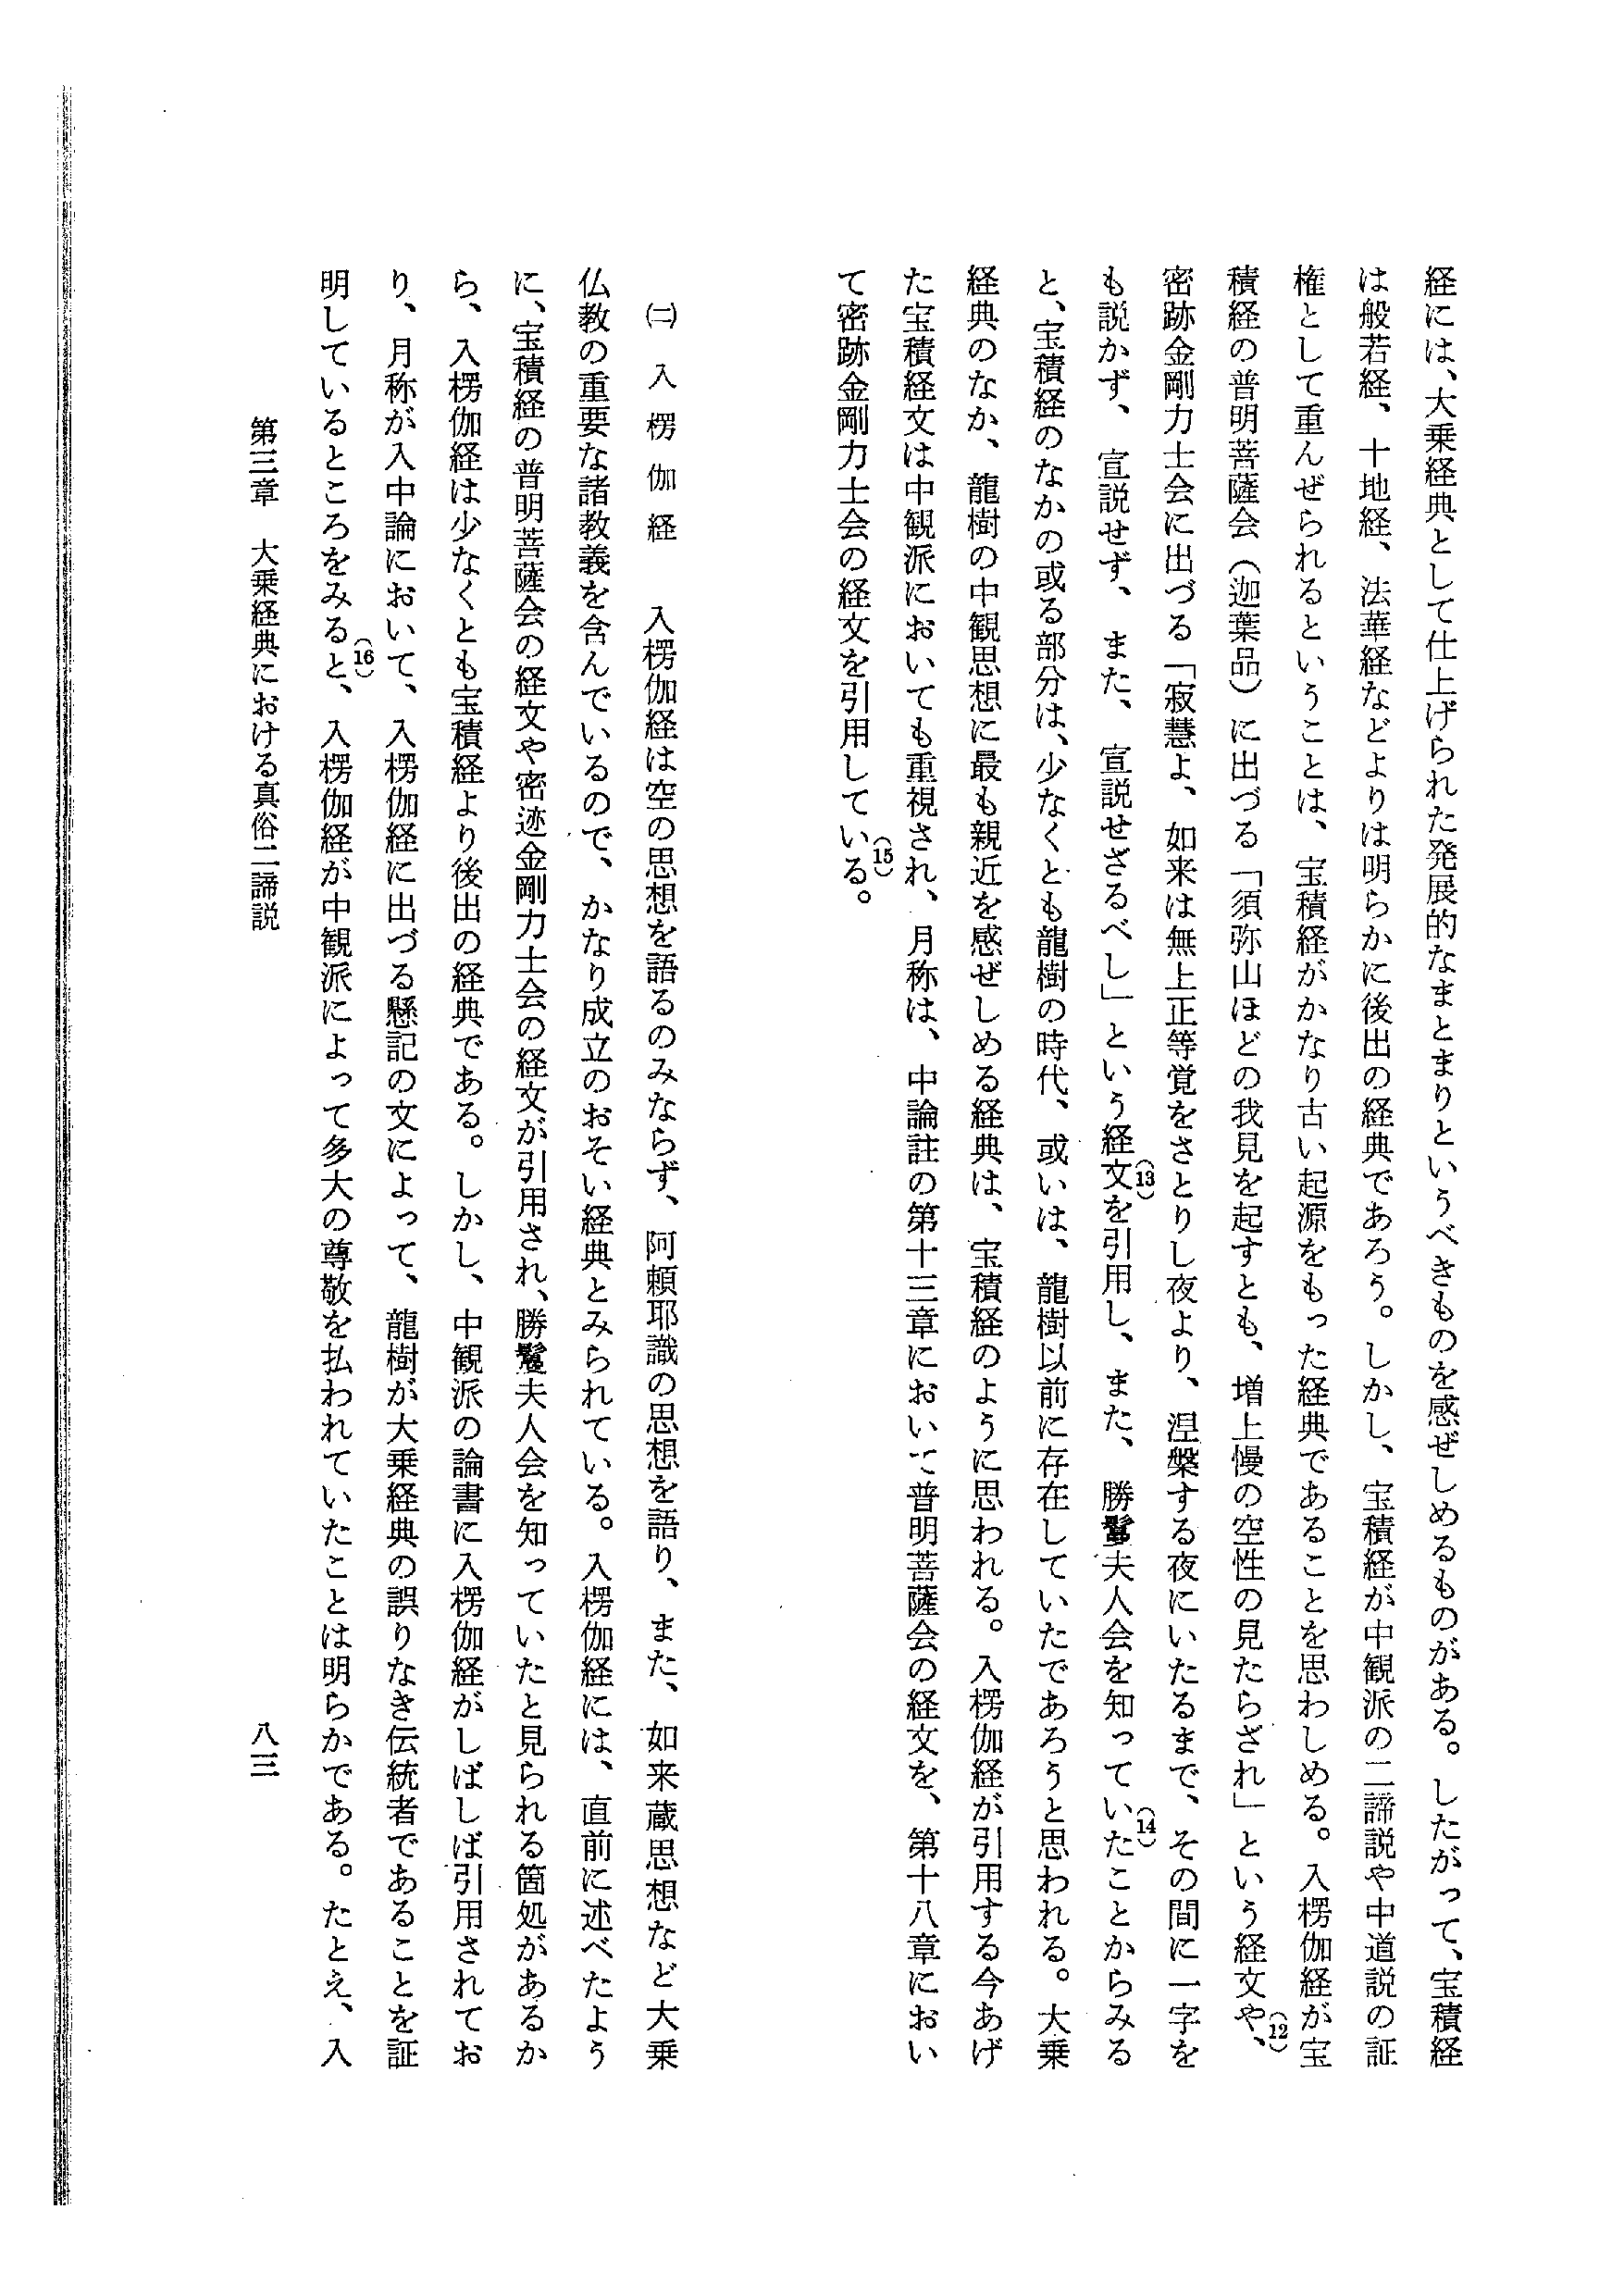 経には、大乗経典として仕上げられた発展的なまとまりというべきものを感ぜしめるものがある。したがって、宝積経
は般若経、十地経、法華経などよりは明らかに後出の経典であろう。しかし、宝積経が中観派の二諦説や中道説の証
権として重んぜられるということは、宝積経がかなり古い起源をもった経典であることを思わしめる。入楞伽経が宝
積経の普明菩薩会（迦葉品）に出づる「須弥山ほどの我見を起すとも、増上慢の空性の見たらざれ」という経文や、(12)
密跡金剛力士会に出づる「寂慧よ、如来は無上正等覚をさとりし夜より、涅槃する夜にいたるまで、その間に一字を
も説かず、宣説せず、また、宣説せざるべし」という経文(13)を引用し、また、勝鬘夫人会を知っていた(14)ことからみる
と、宝積経のなかの或る部分は、少なくとも龍樹の時代、或いは、龍樹以前に存在していたであろうと思われる。大乗
経典のなか、龍樹の中観思想に最も親近を感ぜしめる経典は、宝積経のように思われる。入楞伽経が引用する今あげ
た宝積経文は中観派においても重視され、月称は、中論註の第十三章において普明菩薩会の経文を、第十八章におい
て密跡金剛力士会の経文を引用している(15)。
㈡ 入楞伽経 入楞伽経は空の思想を語るのみならず、阿頼耶識の思想を語り、また、如来蔵思想など大乗
仏教の重要な諸教義を含んでいるので、かなり成立のおそい経典とみられている。入楞伽経には、直前に述べたよう
に、宝積経の普明菩薩会の経文や密迹金剛力士会の経文が引用され、勝鬘夫人会を知っていたと見られる箇処があるか
ら、入楞伽経は少なくとも宝積経より後出の経典である。しかし、中観派の論書に入楞伽経がしばしば引用されてお
り、月称が入中論において、入楞伽経に出づる懸記の文によって、龍樹が大乗経典の誤りなき伝統者であることを証
明しているところをみると(16)、入楞伽経が中観派によって多大の尊敬を払われていたことは明らかである。たとえ、入
第三章 大乗経典における真俗二諦説
八三